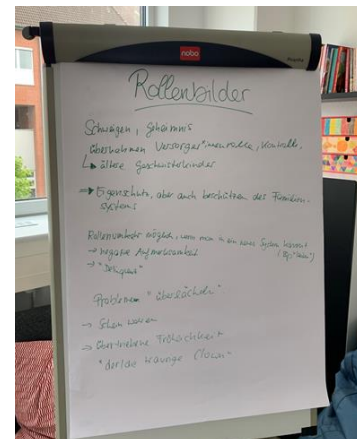 nobo
Rollenbilder
Schweigen, Geheimnis
übernehmen Versorger*innenrolle, Kontrolle,
↳ ältere Geschwisterkinder
→ Eigenschutz, aber auch beschützen des Familien-
systems
Rollenumkehr möglich, wenn man in ein neues System kommt
→ negative Aufmerksamkeit
→ "Delinquenz"
Probleme "überlächeln"
→ Schein wahren
→ übertriebene Fröhlichkeit
"der/die traurige Clown"